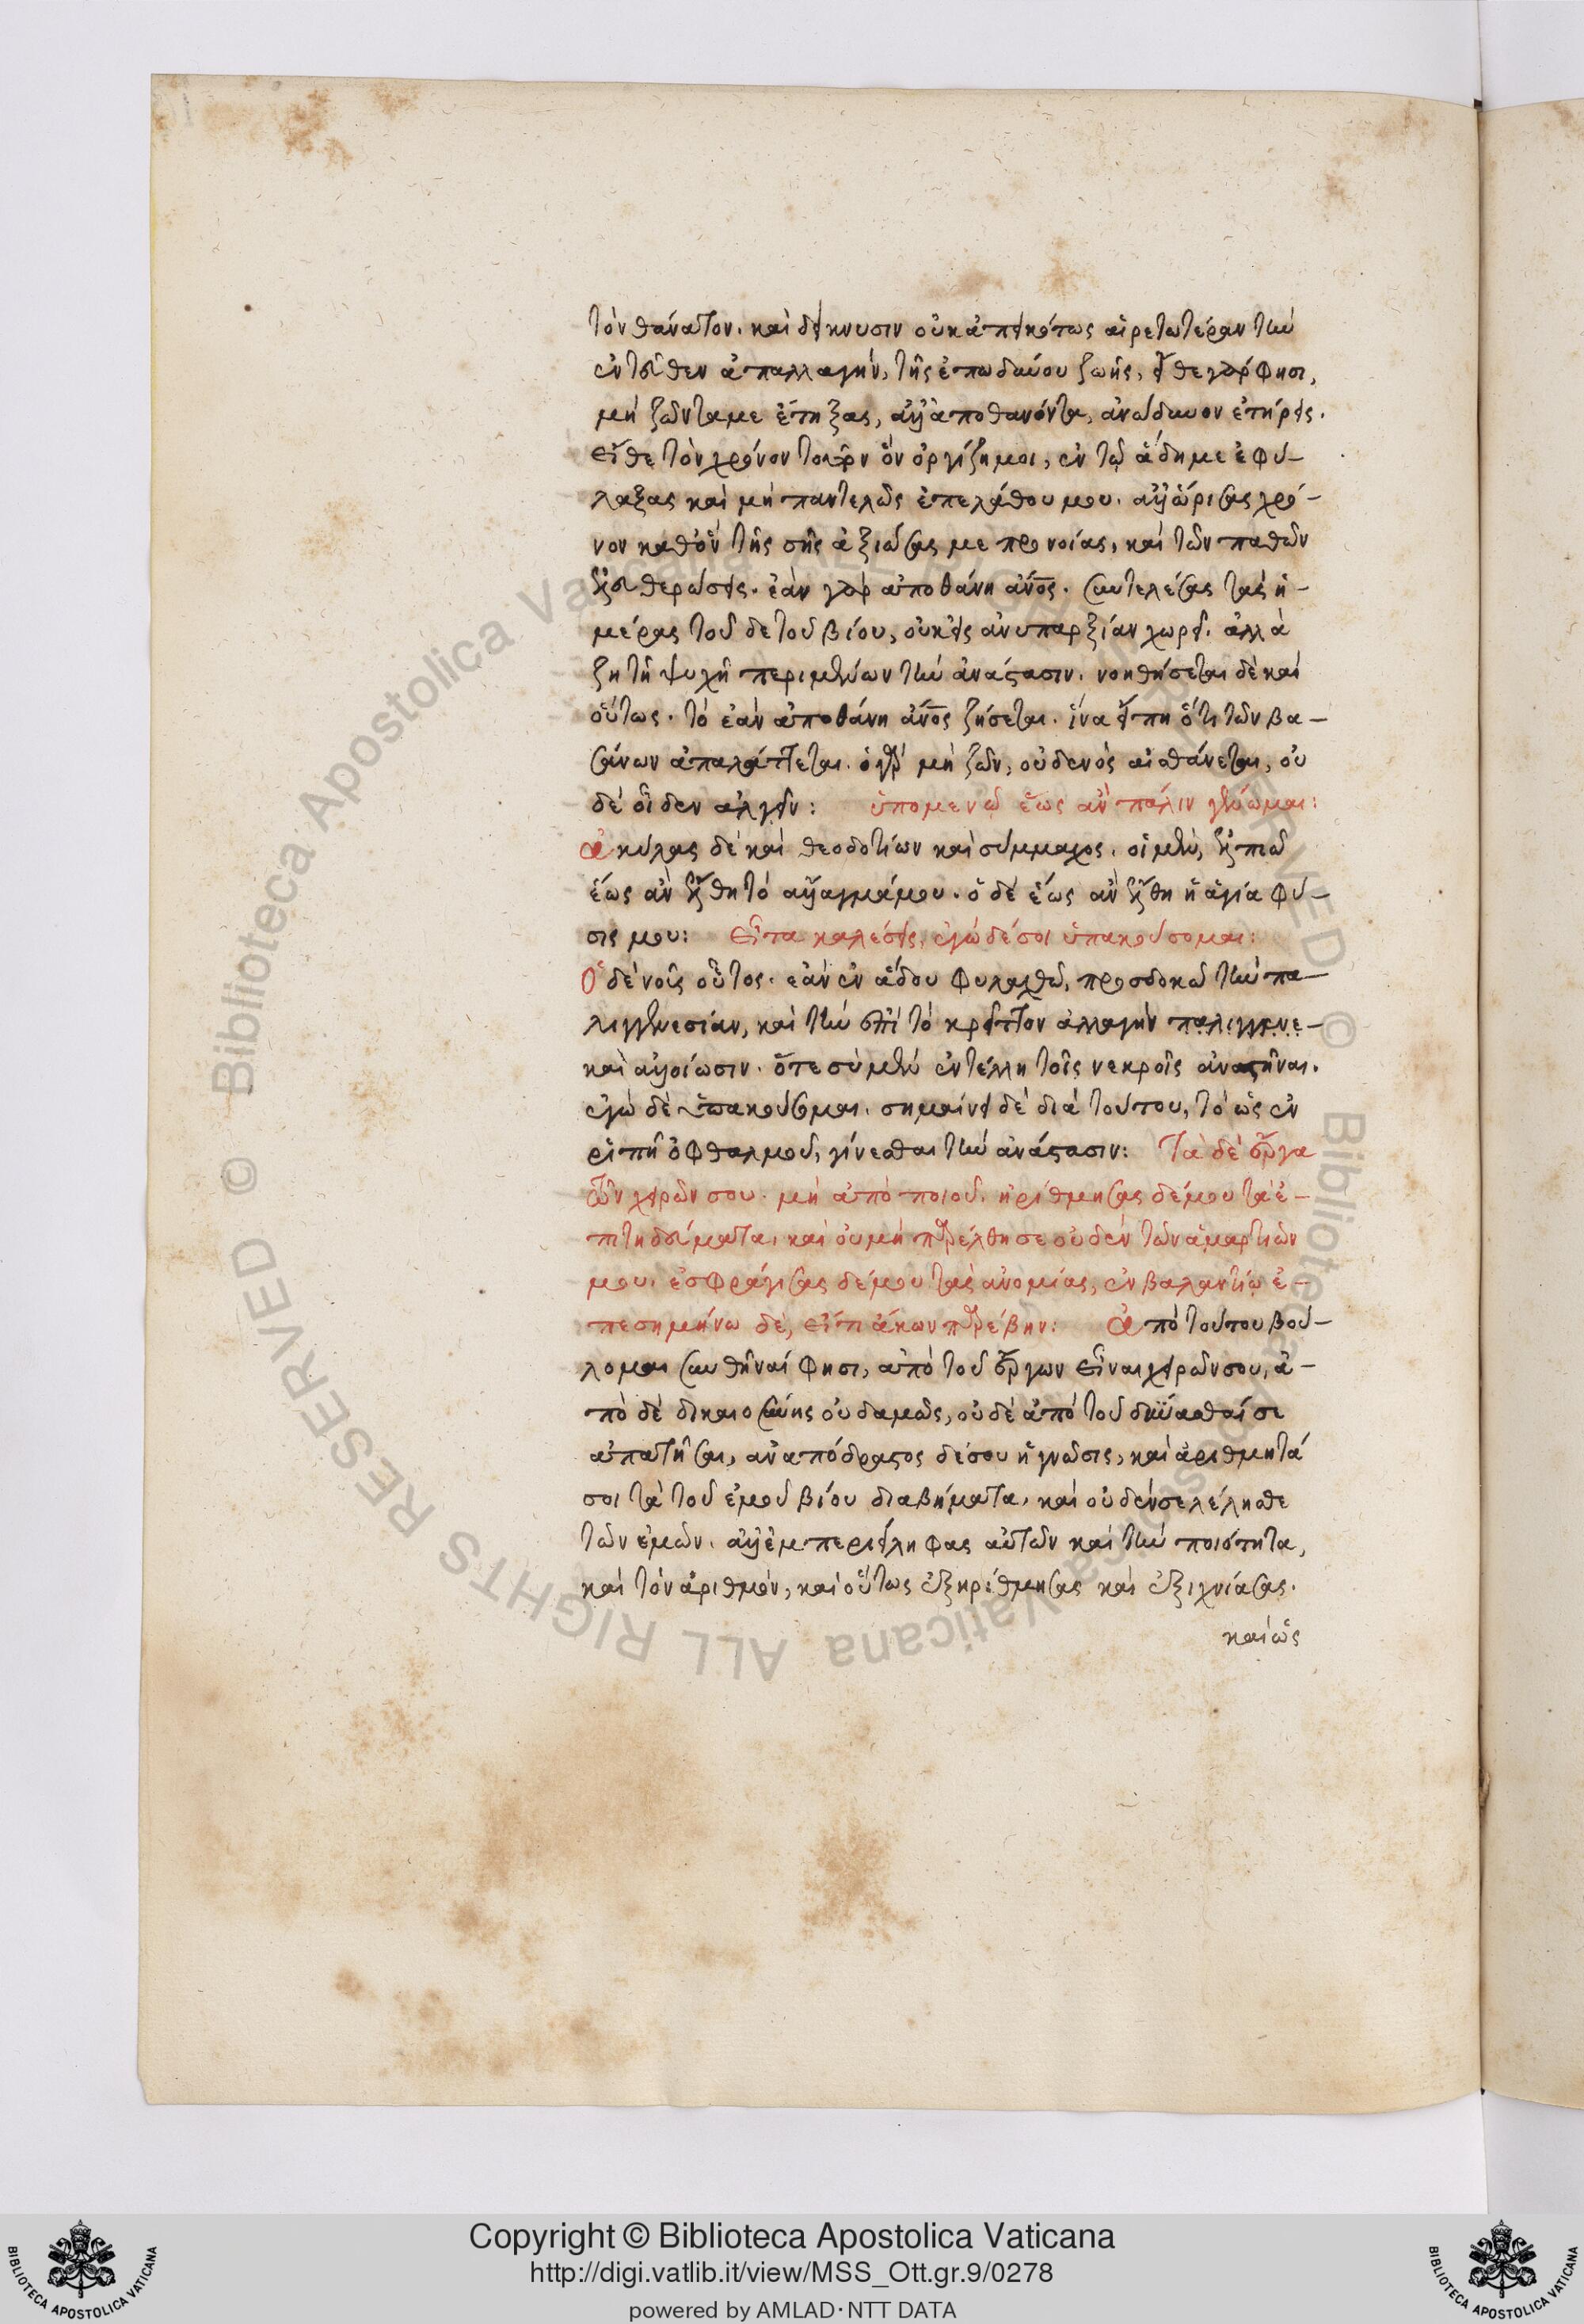 τὸν θάνατον. καὶ δείκνυσιν οὐκ ἀπεικότως αἱρετωτέραν τὴν
ἐντεῦθεν ἀπαλλαγὴν, τῆς ἐπωδύνου ζωῆς, εἴθε γάρ φησι,
μὴ ζῶντα με ἔτηξας, ἀλλ' ἀποθανόντα, ἀνώδυνον ἐτήρεις.
εἴθε τὸν χρόνον τοῦτον ὃν ὀργίζῃ μοι, ἐν τῷ ᾅδῃ με ἐφύ-
λαξας καὶ μὴ παντελῶς ἐπελάθου μου. ἀλλ' ὥρισας χρό-
νον καθ' ὃν τῆς σῆς ἀξιώσας με προνοίας, καὶ τῶν παθῶν
ἐλευθερώσεις. ἐὰν γὰρ ἀποθάνη ἄνος. συντελέσας τὰς ἡ-
μέρας τοῦ δε τοῦ βίου, οὐκ εἰς ἀνυπαρξίαν χωρεῖ. ἀλλὰ
ζῆ τῆ ψυχῆ περιμένων τὴν ἀνάστασιν. νοηθήσεται δὲ καὶ
οὕτως. τὸ ἐὰν ἀποθάνη ἄνος ζήσεται. ἵνα εἴπη ὅτι τῶν βα-
σάνων ἀπαλάττεται. ὁ γὰρ μὴ ζῶν, οὐδενὸς αἰσθάνεται, οὐ
δὲ οἶδεν ἀλγεῖν: ὑπομενῶ ἕως ἂν πάλιν γένωμαι:
ἀκύλας δὲ καὶ θεοδοτίων καὶ σύμμαχος. οἱ μὲν, ἐλπιῶ
ἕως ἂν ἔλθη τὸ ἄλλαγμά μου. ὁ δὲ ἕως ἂν ἔλθη ἡ ἁγία φύ-
σις μου: εἶτα καλέσεις, ἐγὼ δέ σοι ὑπακούσομαι:
ὁ δὲ νοῦς οὗτος. ἐὰν ἐν ᾅδου φυλαχθῶ, προσδοκῶ τὴν πα-
λιγγενεσίαν, καὶ τὴν ἐπὶ τὸ κρεῖττον ἀλλαγὴν παλιγγενε-
καὶ ἀλλοίωσιν. ὅτε σὺ μὲν ἐντέλλη τοῖς νεκροῖς ἀναστῆναι.
ἐγὼ δὲ ὑπακούσομαι. σημαίνει δὲ διὰ τούτου, τὸ ὡς ἐν
ῥιπῆ ὀφθαλμοῦ, γίνεσθαι τὴν ἀνάστασιν: Τὰ δὲ ἔργα
τῶν χειρῶν σου. μὴ ἀπὸ ποιοῦ. ἠρίθμησας δέ μου τὰ ἐ-
πιτηδεύματα, καὶ οὐ μὴ παρέλθη σε οὐδὲν τῶν ἁμαρτιῶν
μου. ἐσφράγισας δέ μου τὰς ἀνομίας, ἐν βαλαντίῳ ἐ-
πεσημήνω δὲ, εἴ τι ἄκων παρέβην: ἀπὸ τούτου βού-
λομαι συνθῆναί φησι, ἀπὸ τοῦ ἔργων εἶναι χειρῶν σου, ἀ-
πὸ δὲ δικαιοσύνης οὐδαμῶς, οὐδὲ ἀπὸ τοῦ δύνασθαί σε
ἀπατῆσαι, ἀναπόδραστος δέ σου ἡ γνῶσις, καὶ ἀριθμητά
σοι τὰ τοῦ ἐμοῦ βίου διαβήματα, καὶ οὐδέν σε λέληθε
τῶν ἐμῶν. ἀλλ' ἐμπεριείληφας αὐτῶν καὶ τὴν ποιότητα,
καὶ τὸν ἀριθμὸν, καὶ οὕτως ἐξηρίθμησας καὶ ἐξιχνίασας.
καὶ ὡς
Copyright © Biblioteca Apostolica Vaticana
http://digi.vatlib.it/view/MSS_Ott.gr.9/0278
powered by AMLAD·NTT DATA
BIBLIOTECA APOSTOLICA VATICANA
BIBLIOTECA APOSTOLICA VATICANA
© Biblioteca Apostolica Vaticana ALL RIGHTS RESERVED